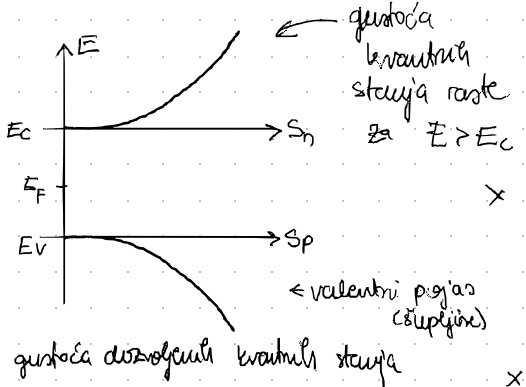 gustoća
kvantnih
stanja raste
za E > Ec
E
Ec
Sn
EF
Ev
Sp
← valentni pojas
(šupljine)
gustoća dozvoljenih kvantnih stanja